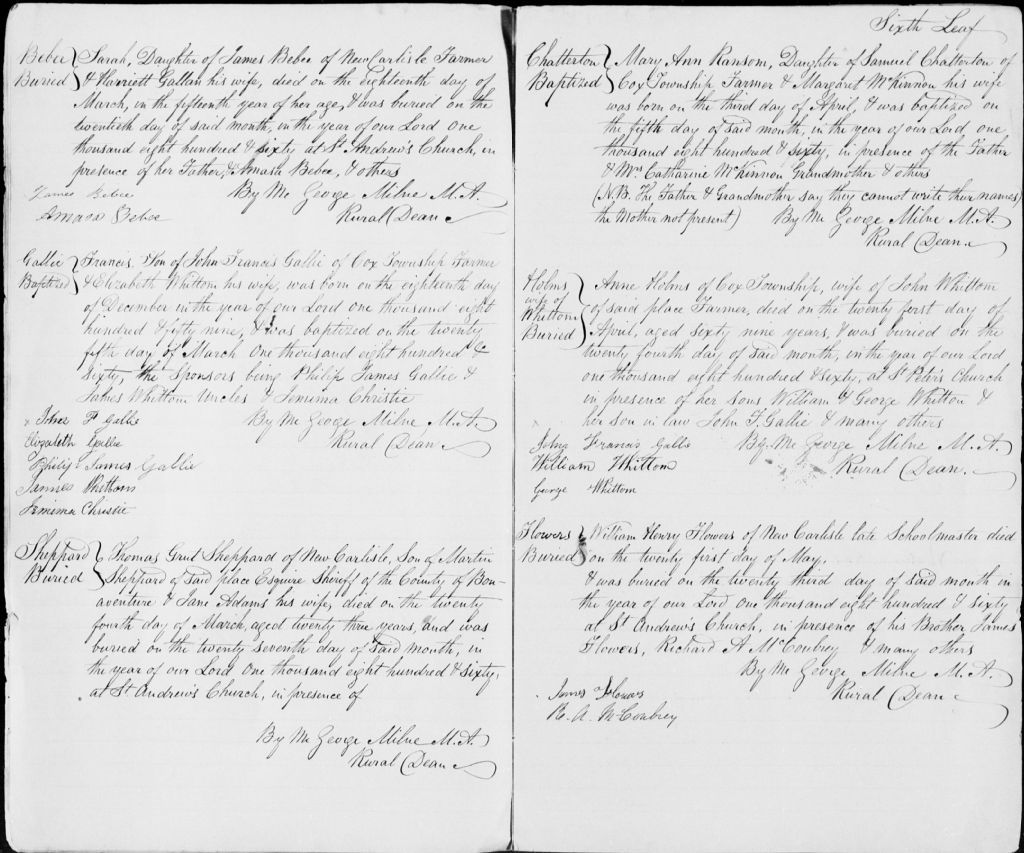 Bebee Buried } Sarah, Daughter of James Bebee of New Carlisle Farmer
& Harriett Gallan his wife, died on the eighteenth day of
March, in the fifteenth year of her age, & was buried on the
twentieth day of said month, in the year of our Lord one
thousand eight hundred & sixty at St Andrew's Church, in
presence of her Father, & Amasa Bebee, & others
James Bebee By Me George Milne M.A.
Amasa Bebee Rural Dean
Gallie Baptized } Francis Son of John Francis Gallie of Cox Township Farmer
& Elizabeth Whittom his wife, was born on the eighteenth day
of December in the year of our Lord one thousand eight
hundred & fifty nine, & was baptized on the twenty
fifth day of March One thousand eight hundred &
sixty, the Sponsors being Philip James Gallie &
James Whittom Uncles & Jemima Christie
x John F Gallie By Me George Milne M.A.
Elizabeth Gallie Rural Dean
Philip James Gallie
James Whittom
Jemima Christie
Sheppard Buried } Thomas Grut Sheppard of New Carlisle, Son of Martin
Sheppard of said place Esquire Sheriff of the County of Bon-
aventure & Jane Adams his wife, died on the twenty
fourth day of March, aged twenty three years, and was
buried on the twenty seventh day of said month, in
the year of our Lord One thousand eight hundred & sixty,
at St Andrew's Church, in presence of
By Me George Milne M.A.
Rural Dean
Sixth Leaf
Chatterton Baptized } Mary Ann Ransom, Daughter of Samuel Chatterton of
Cox Township Farmer & Margaret McKinnon his wife
was born on the third day of April, & was baptized on
the fifth day of said month, in the year of our Lord one
thousand eight hundred & sixty, in presence of the Father
& Mrs Catharine McKinnon Grandmother & others
(N.B. The Father & Grandmother say they cannot write their names)
the Mother not present) By Me George Milne M.A.
Rural Dean
Holms wife of Whittom Buried } Anne Holms of Cox Township, wife of John Whittom
of said place Farmer, died on the twenty first day of
April, aged sixty nine years, & was buried on the
twenty fourth day of said month, in the year of our Lord
one thousand eight hundred & sixty, at St Peter's Church
in presence of her sons William & George Whitton &
her son in law John F. Gallie & many others
John Francis Gallie By Me George Milne M.A.
William Whittom Rural Dean.
George Whittom
Flowers Buried } William Henry Flowers of New Carlisle late Schoolmaster died
on the twenty first day of May.
& was buried on the twenty third day of said month in
the year of our Lord One thousand eight hundred & sixty
at St Andrew's Church, in presence of his Brother James
Flowers, Richard A McConbrey & many others
By Me George Milne M.A.
James Flowers Rural Dean
R. A. McConbrey